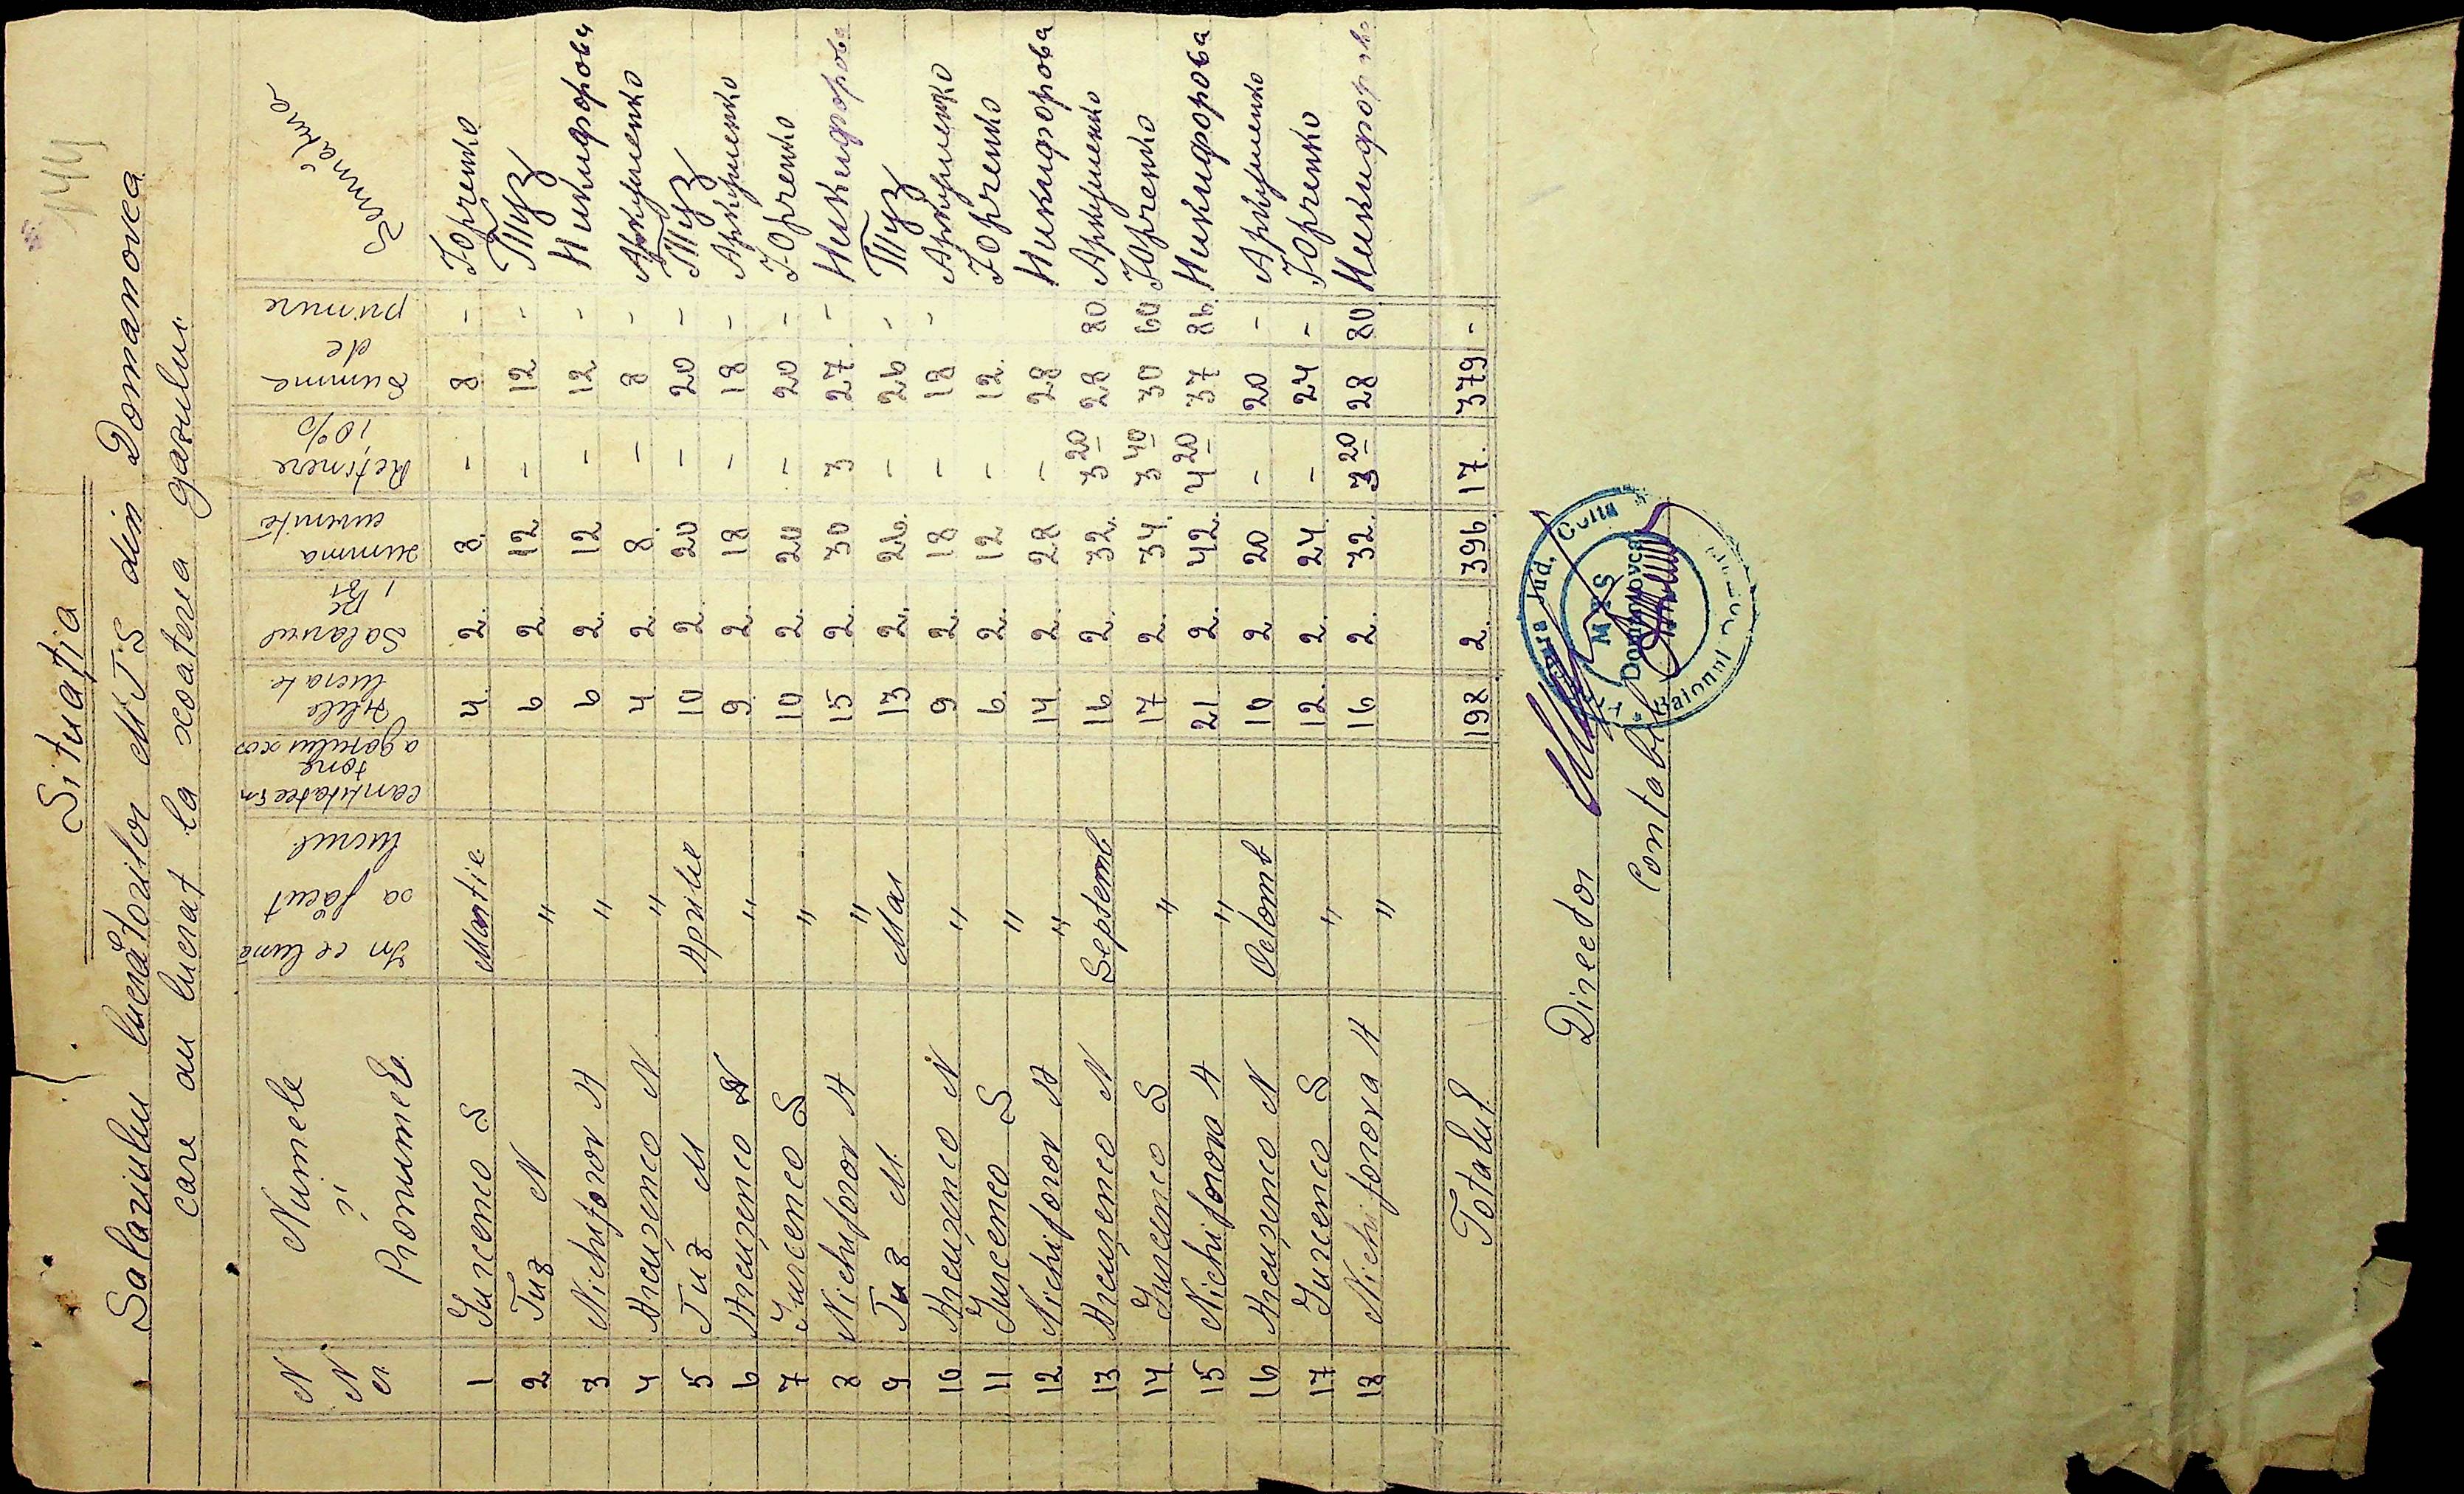 144
Situația
Salariului lucrătorilor MTS din Domanovca
care au lucrat la scoaterea gazului.
N N r | Numele și Pronumele | In ce luna sa făcut lucrul | cantitatea în tone a gazului scos | Zilele lucrate | Salariul pe 1 zi | summa cuvenită | Rețineri 10% | Summa de primire | Semnătura
1 | Iurcenco S | Martie | | 4. | 2. | 8. | – | 8 – | Юрченко
2 | Tuz N | " | | 6 | 2. | 12 | – | 12 – | Туз
3 | Nichiforov A | " | | 6 | 2. | 12 | – | 12 – | Никифорова
4 | Arcușenco N | " | | 4 | 2. | 8. | – | 8 – | Аркушенко
5 | Tuz M | Aprilie | | 10 | 2. | 20 | – | 20 – | Туз
6 | Arcușenco N | " | | 9. | 2. | 18 | – | 18 – | Аркушенко
7 | Iurcenco S | " | | 10 | 2. | 20 | – | 20 – | Юрченко
8 | Nichiforov A | " | | 15 | 2. | 30 | 3 | 27 – | Никифорова
9 | Tuz M. | Mai | | 13 | 2. | 26. | – | 26 – | Туз
10 | Arcușenco N | " | | 9 | 2. | 18 | – | 18 – | Аркушенко
11 | Iurcenco S | " | | 6. | 2. | 12 | – | 12. | Юрченко
12 | Nichiforov A | " | | 14 | 2. | 28 | – | 28 | Никифорова
13 | Arcușenco N | Septemb | | 16 | 2. | 32. | 3 20 | 28 80. | Аркушенко
14 | Iurcenco S | " | | 17 | 2. | 34. | 3 40 | 30 60 | Юрченко
15 | Nichiforova A | " | | 21 | 2. | 42. | 4 20 | 37 86. | Никифорова
16 | Arcușenco N | Octomb | | 10 | 2 | 20 | – | 20 – | Аркушенко
17 | Iurcenco S | " | | 12. | 2. | 24. | – | 24 – | Юрченко
18 | Nichiforova A | " | | 16 | 2. | 32. | 3 20 | 28 80 | Никифорова
Totalul | 198 | 2. | 396 | 17. | 379 –
Director
Contabil
Jud. Golta
MTS
Domanovca
Raionul